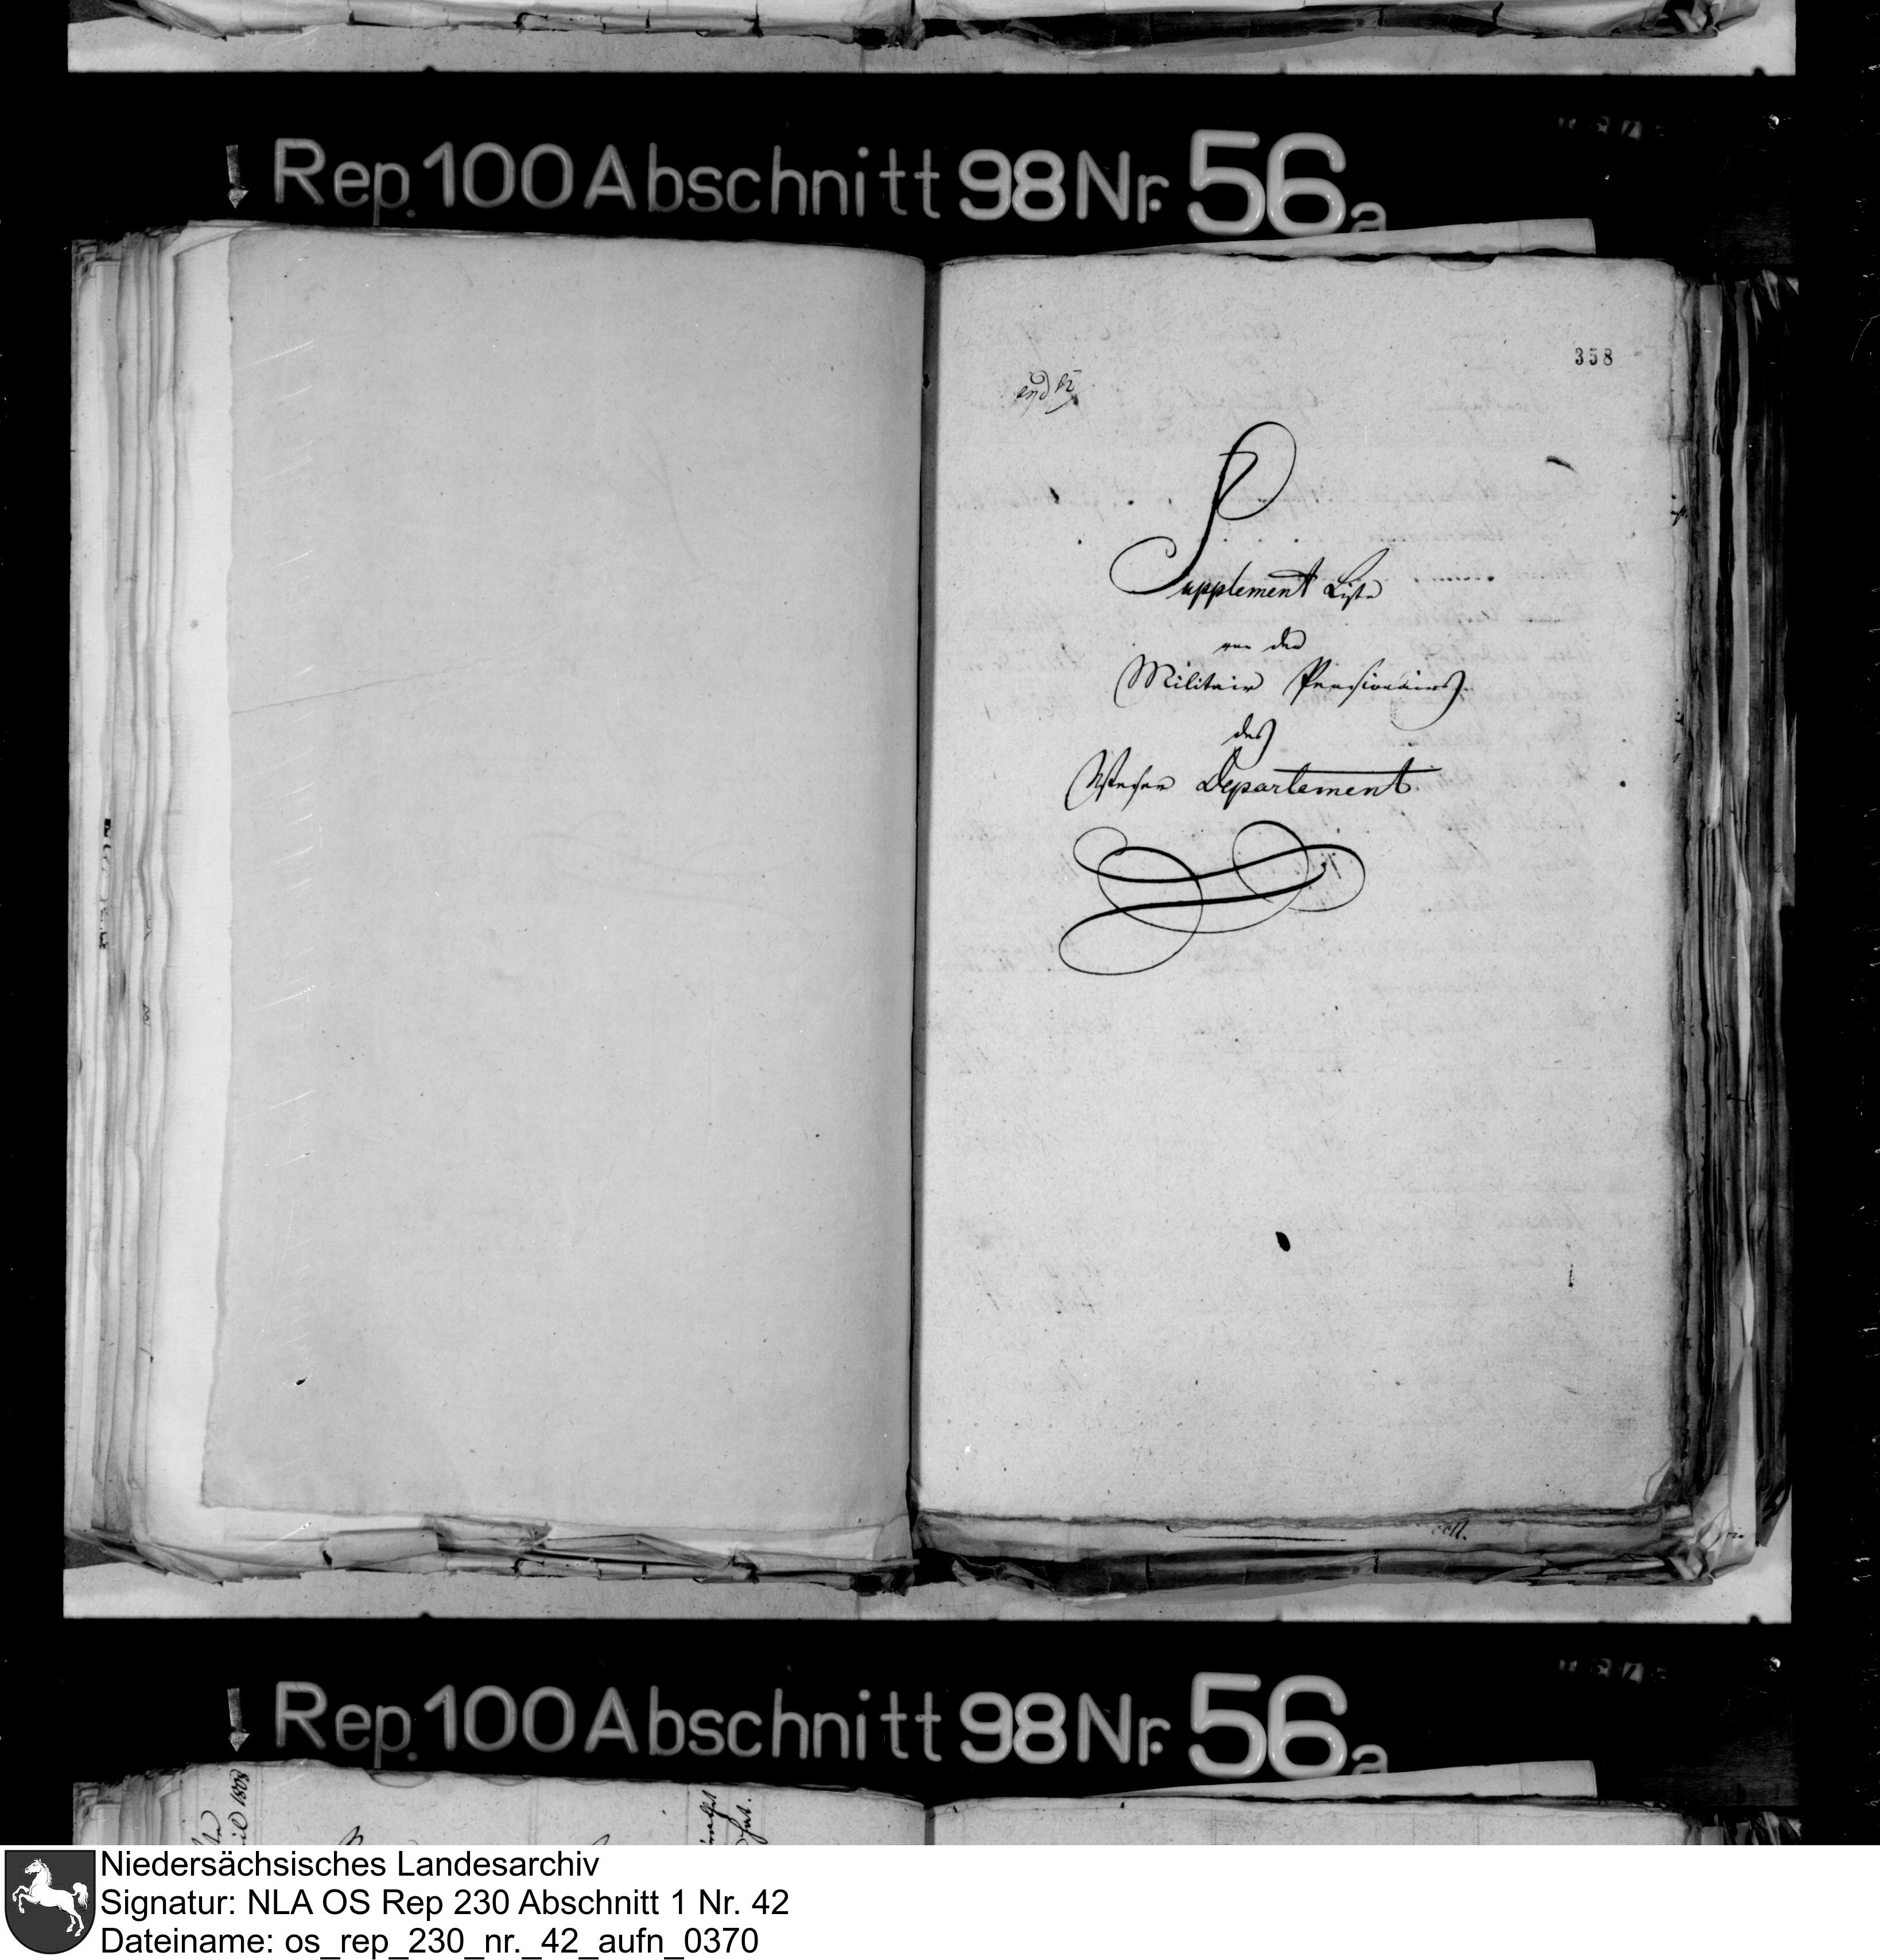 Rep. 100 Abschnitt 98 Nr. 56a
358
Supplement Liste
von den
Militair Pensionairs
des
Weser Departement
Rep. 100 Abschnitt 98 Nr. 56a
1808
Niedersächsisches Landesarchiv
Signatur: NLA OS Rep 230 Abschnitt 1 Nr. 42
Dateiname: os_rep_230_nr._42_aufn_0370